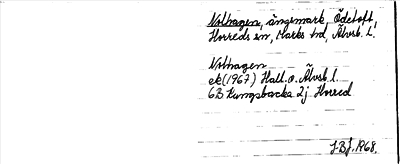 Nolhagen, ängsmark, Ödetoft,
Horreds sn, Marks hd, Älvsb. L.
Nolhagen
ek(1967) Hall. o. Älvsb l.
6B Kungsbacka 2j Horred
J.Bj. 1968.